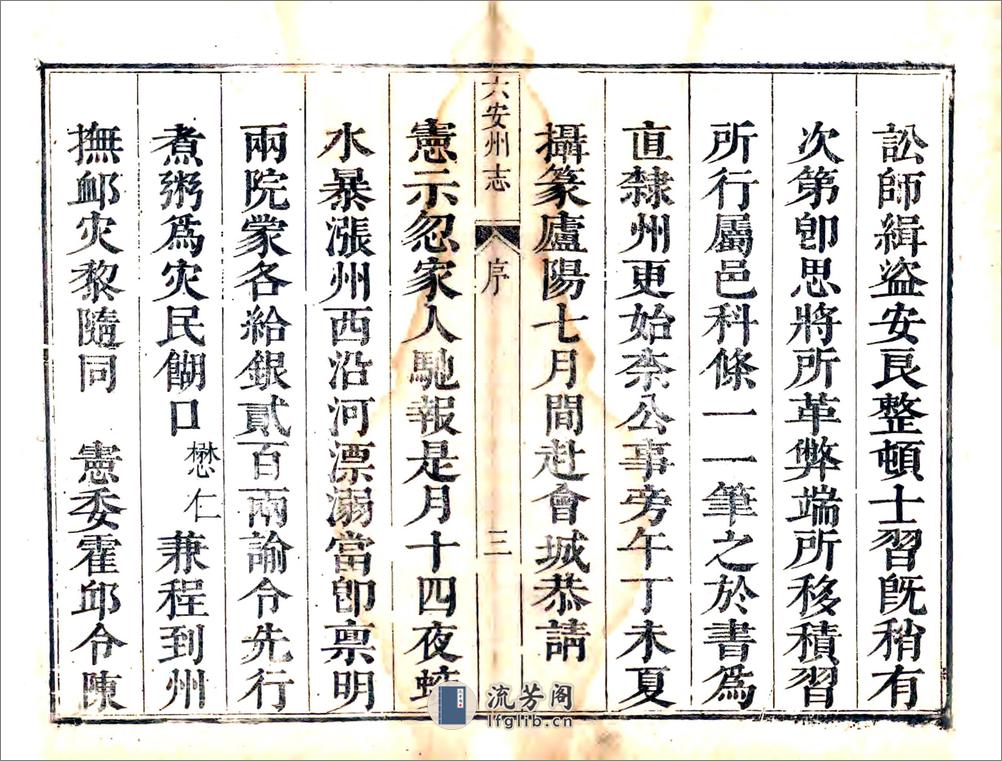 訟師緝盜安良整頓士習旣稍有
次第卽思將所革弊端所移積習
所行屬邑科條一一筆之於書爲
直隸州更始柰公事旁午丁未夏
攝篆廬陽七月間赴會城恭請
六安州志 序 三
憲示忽家人馳報是月十四夜蛟
水暴漲州西沿河漂溺當卽稟明
兩院蒙各給銀貳百兩諭令先行
煮粥爲灾民餬口懋仁兼程到州
撫䘏灾黎隨同 憲委霍邱令陳
流芳阁
lfglib.cn